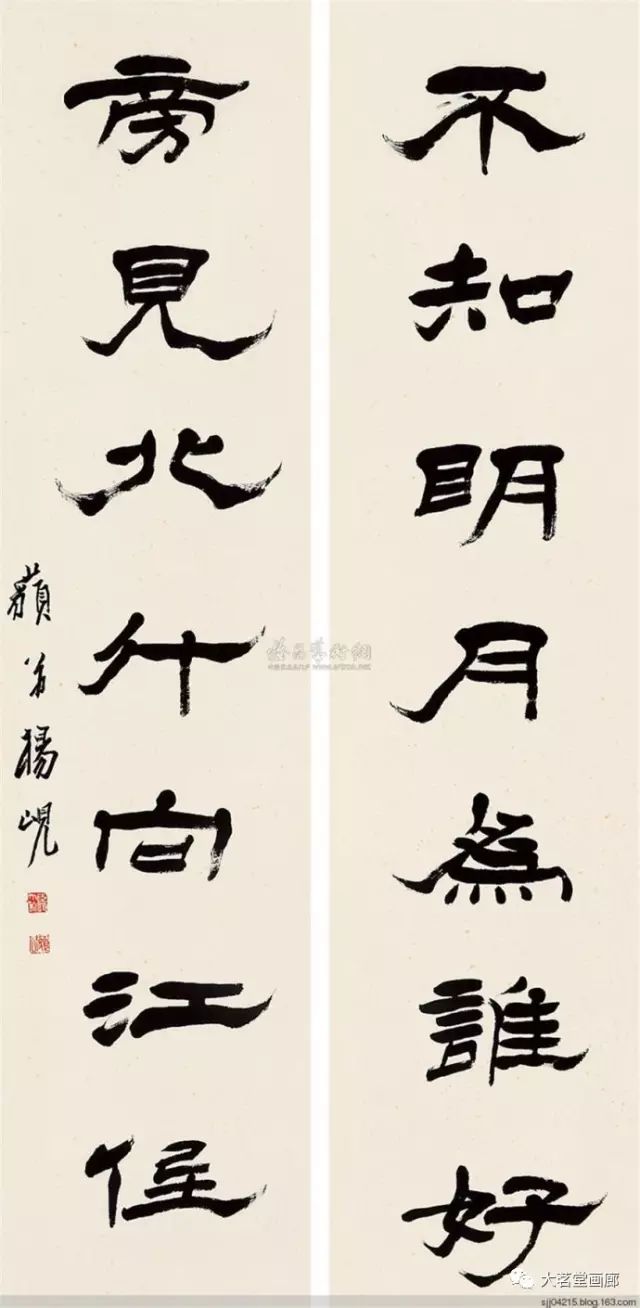 不知明月為誰好
旁見北斗向江低
藐翁楊峴
大茗堂画廊
sjj04215.blog.163.com